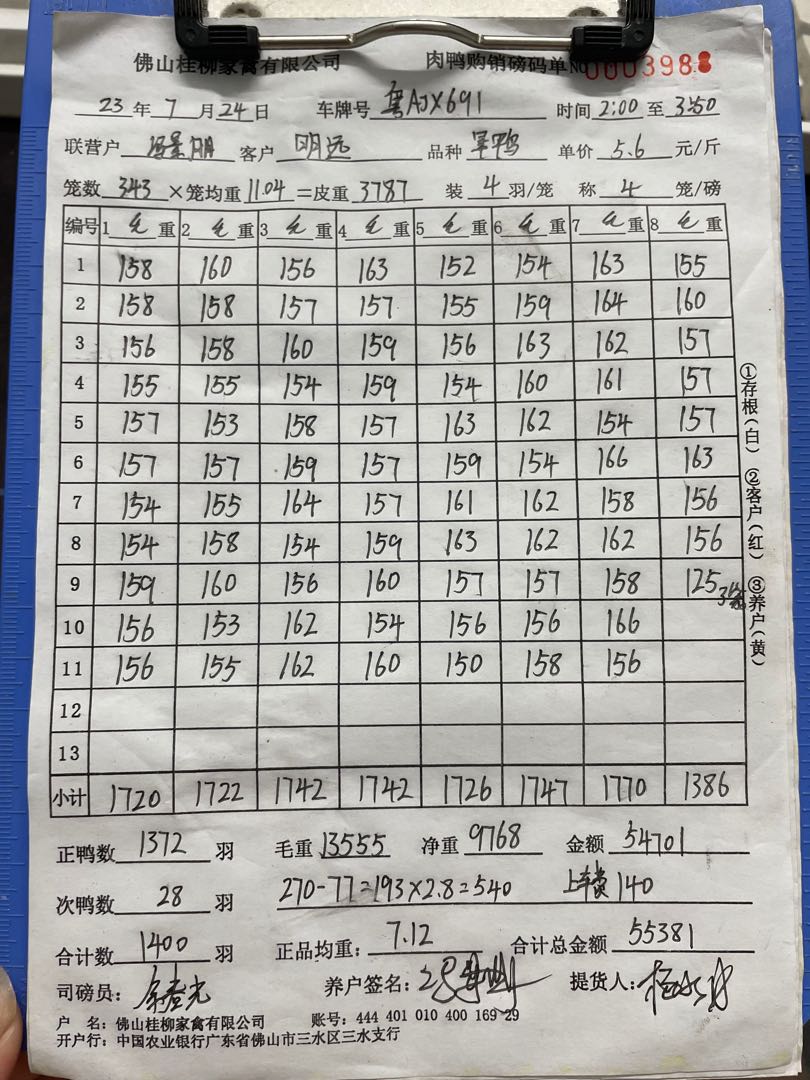 佛山桂柳家禽有限公司 肉鸭购销磅码单 No 0003988
23 年 7 月 24 日 车牌号 粤AJX691 时间 2:00 至 3:50
联营户 客户 明远 品种 单价 5.6 元/斤
笼数 343 ×笼均重 11.04 =皮重 3787 装 4 羽/笼 称 4 笼/磅
编号 1 毛 重 2 毛 重 3 毛 重 4 毛 重 5 毛 重 6 毛 重 7 毛 重 8 毛 重
1 158 160 156 163 152 154 163 155
2 158 158 157 157 155 159 164 160
3 156 158 160 159 156 163 162 157
4 155 155 154 159 154 160 161 157
5 157 153 158 157 163 162 154 157
6 157 157 159 157 159 154 166 163
7 154 155 164 157 161 162 158 156
8 154 158 154 159 163 162 162 156
9 159 160 156 160 157 157 158 125 3笼
10 156 153 162 154 156 156 166
11 156 155 162 160 150 158 156
12
13
小计 1720 1722 1742 1742 1726 1747 1770 1386
正鸭数 1372 羽 毛重 13555 净重 9768 金额 54701
次鸭数 28 羽 270-77=193×2.8=540 上车费 140
合计数 1400 羽 正品均重: 7.12 合计总金额 55381
司磅员: 养户签名: 提货人:
户 名: 佛山桂柳家禽有限公司 账号: 444 401 010 400 169 29
开户行: 中国农业银行广东省佛山市三水区三水支行
①存根(白) ②客户(红) ③养户(黄)